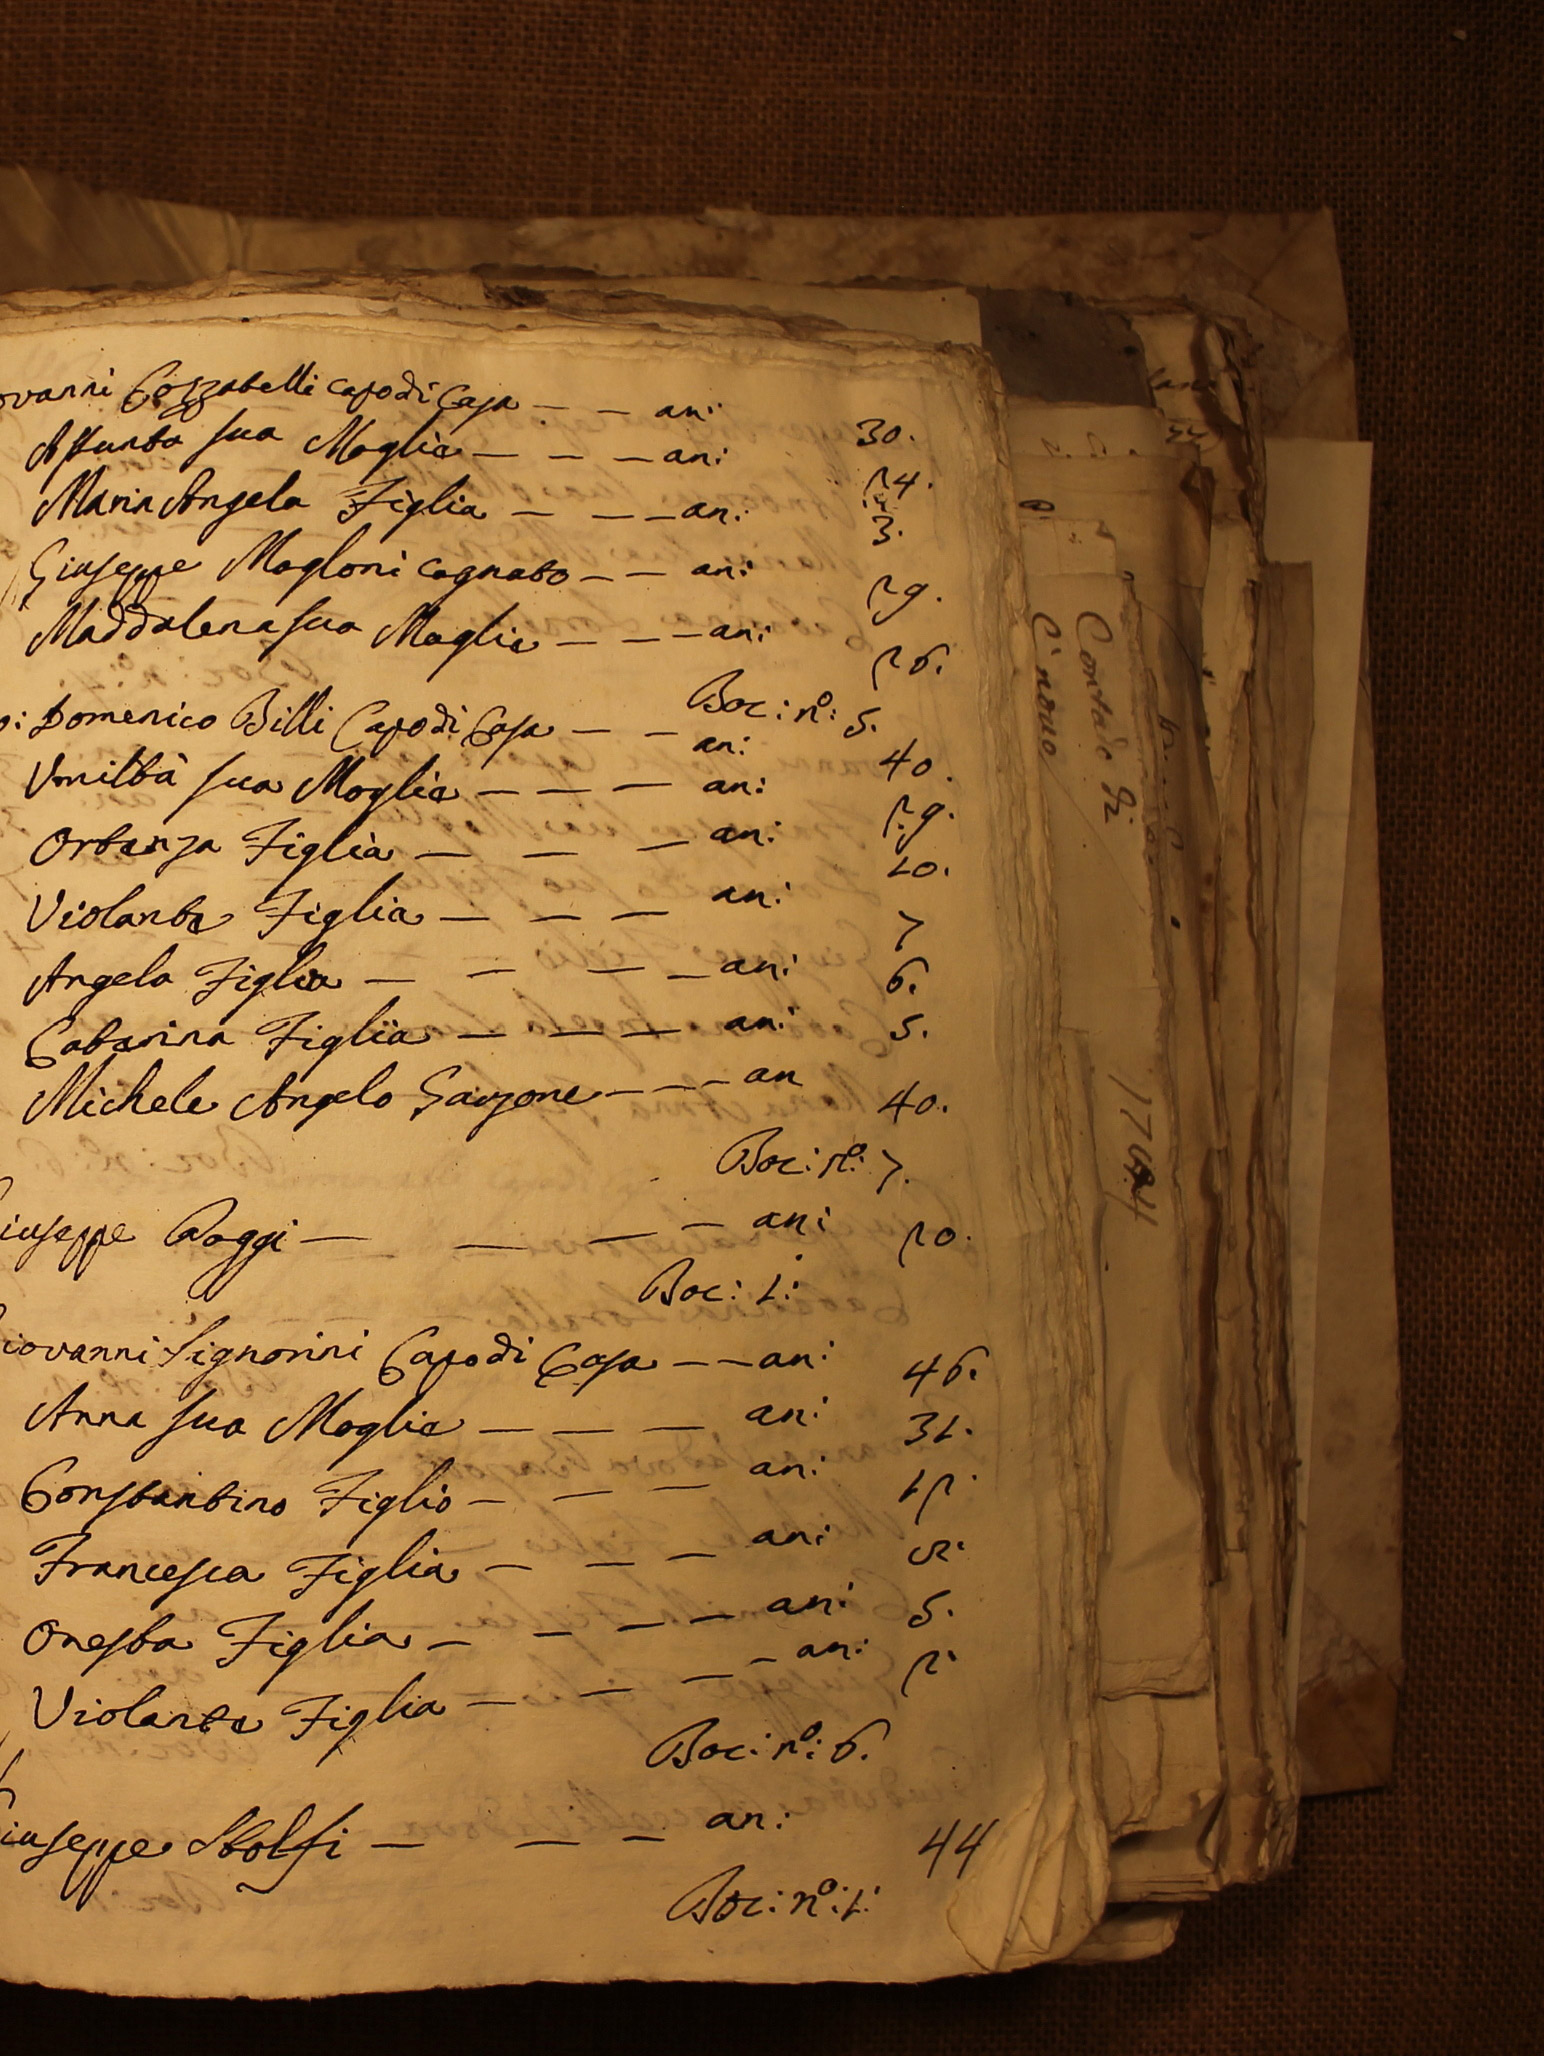 ovanni Cozzabelli capo di Casa — — ani: 30.
Assunta sua Moglie — — — ani: 24.
Maria Angela Figlia — — — an: 3.
Giuseppe Magloni cognato — — ani: 29.
Maddalena sua Moglie — — — ani: 26.
Boc: nº: 5.
o: Domenico Billi Capo di Casa — — an: 40.
Vmiltà sua Moglie — — — an: 29.
Ortenza Figlia — — — an: 10.
Violante Figlia — — — an: 7
Angela Figlia — — — — ani: 6.
Catarina Figlia — — — ani 5.
Michele Angelo Garzone — — — an 40.
Boc: nº: 7.
iuseppe Poggi — — — — ani 20.
Boc: 1:
iovanni Signorini Capo di Casa — — ani: 46.
Anna sua Moglie — — — ani 31.
Constantino Figlio — — — ani: 12.
Francesca Figlia — — — ani
Onesta Figlia — — — — ani 5.
Violante Figlia — — — — ani: 2.
Boc: nº: 6.
iuseppe Stolfi — — — an: 44
Boc: nº: 1:
Contado di
1764